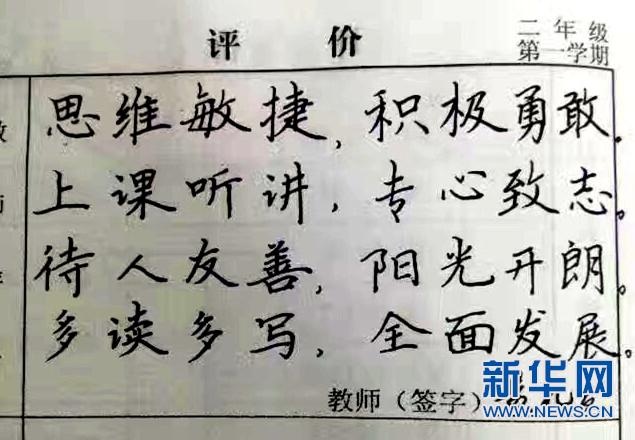 评 价
二年级
第一学期
思维敏捷，积极勇敢。
上课听讲，专心致志。
待人友善，阳光开朗。
多读多写，全面发展。
教师（签字）
新华网
WWW.NEWS.CN